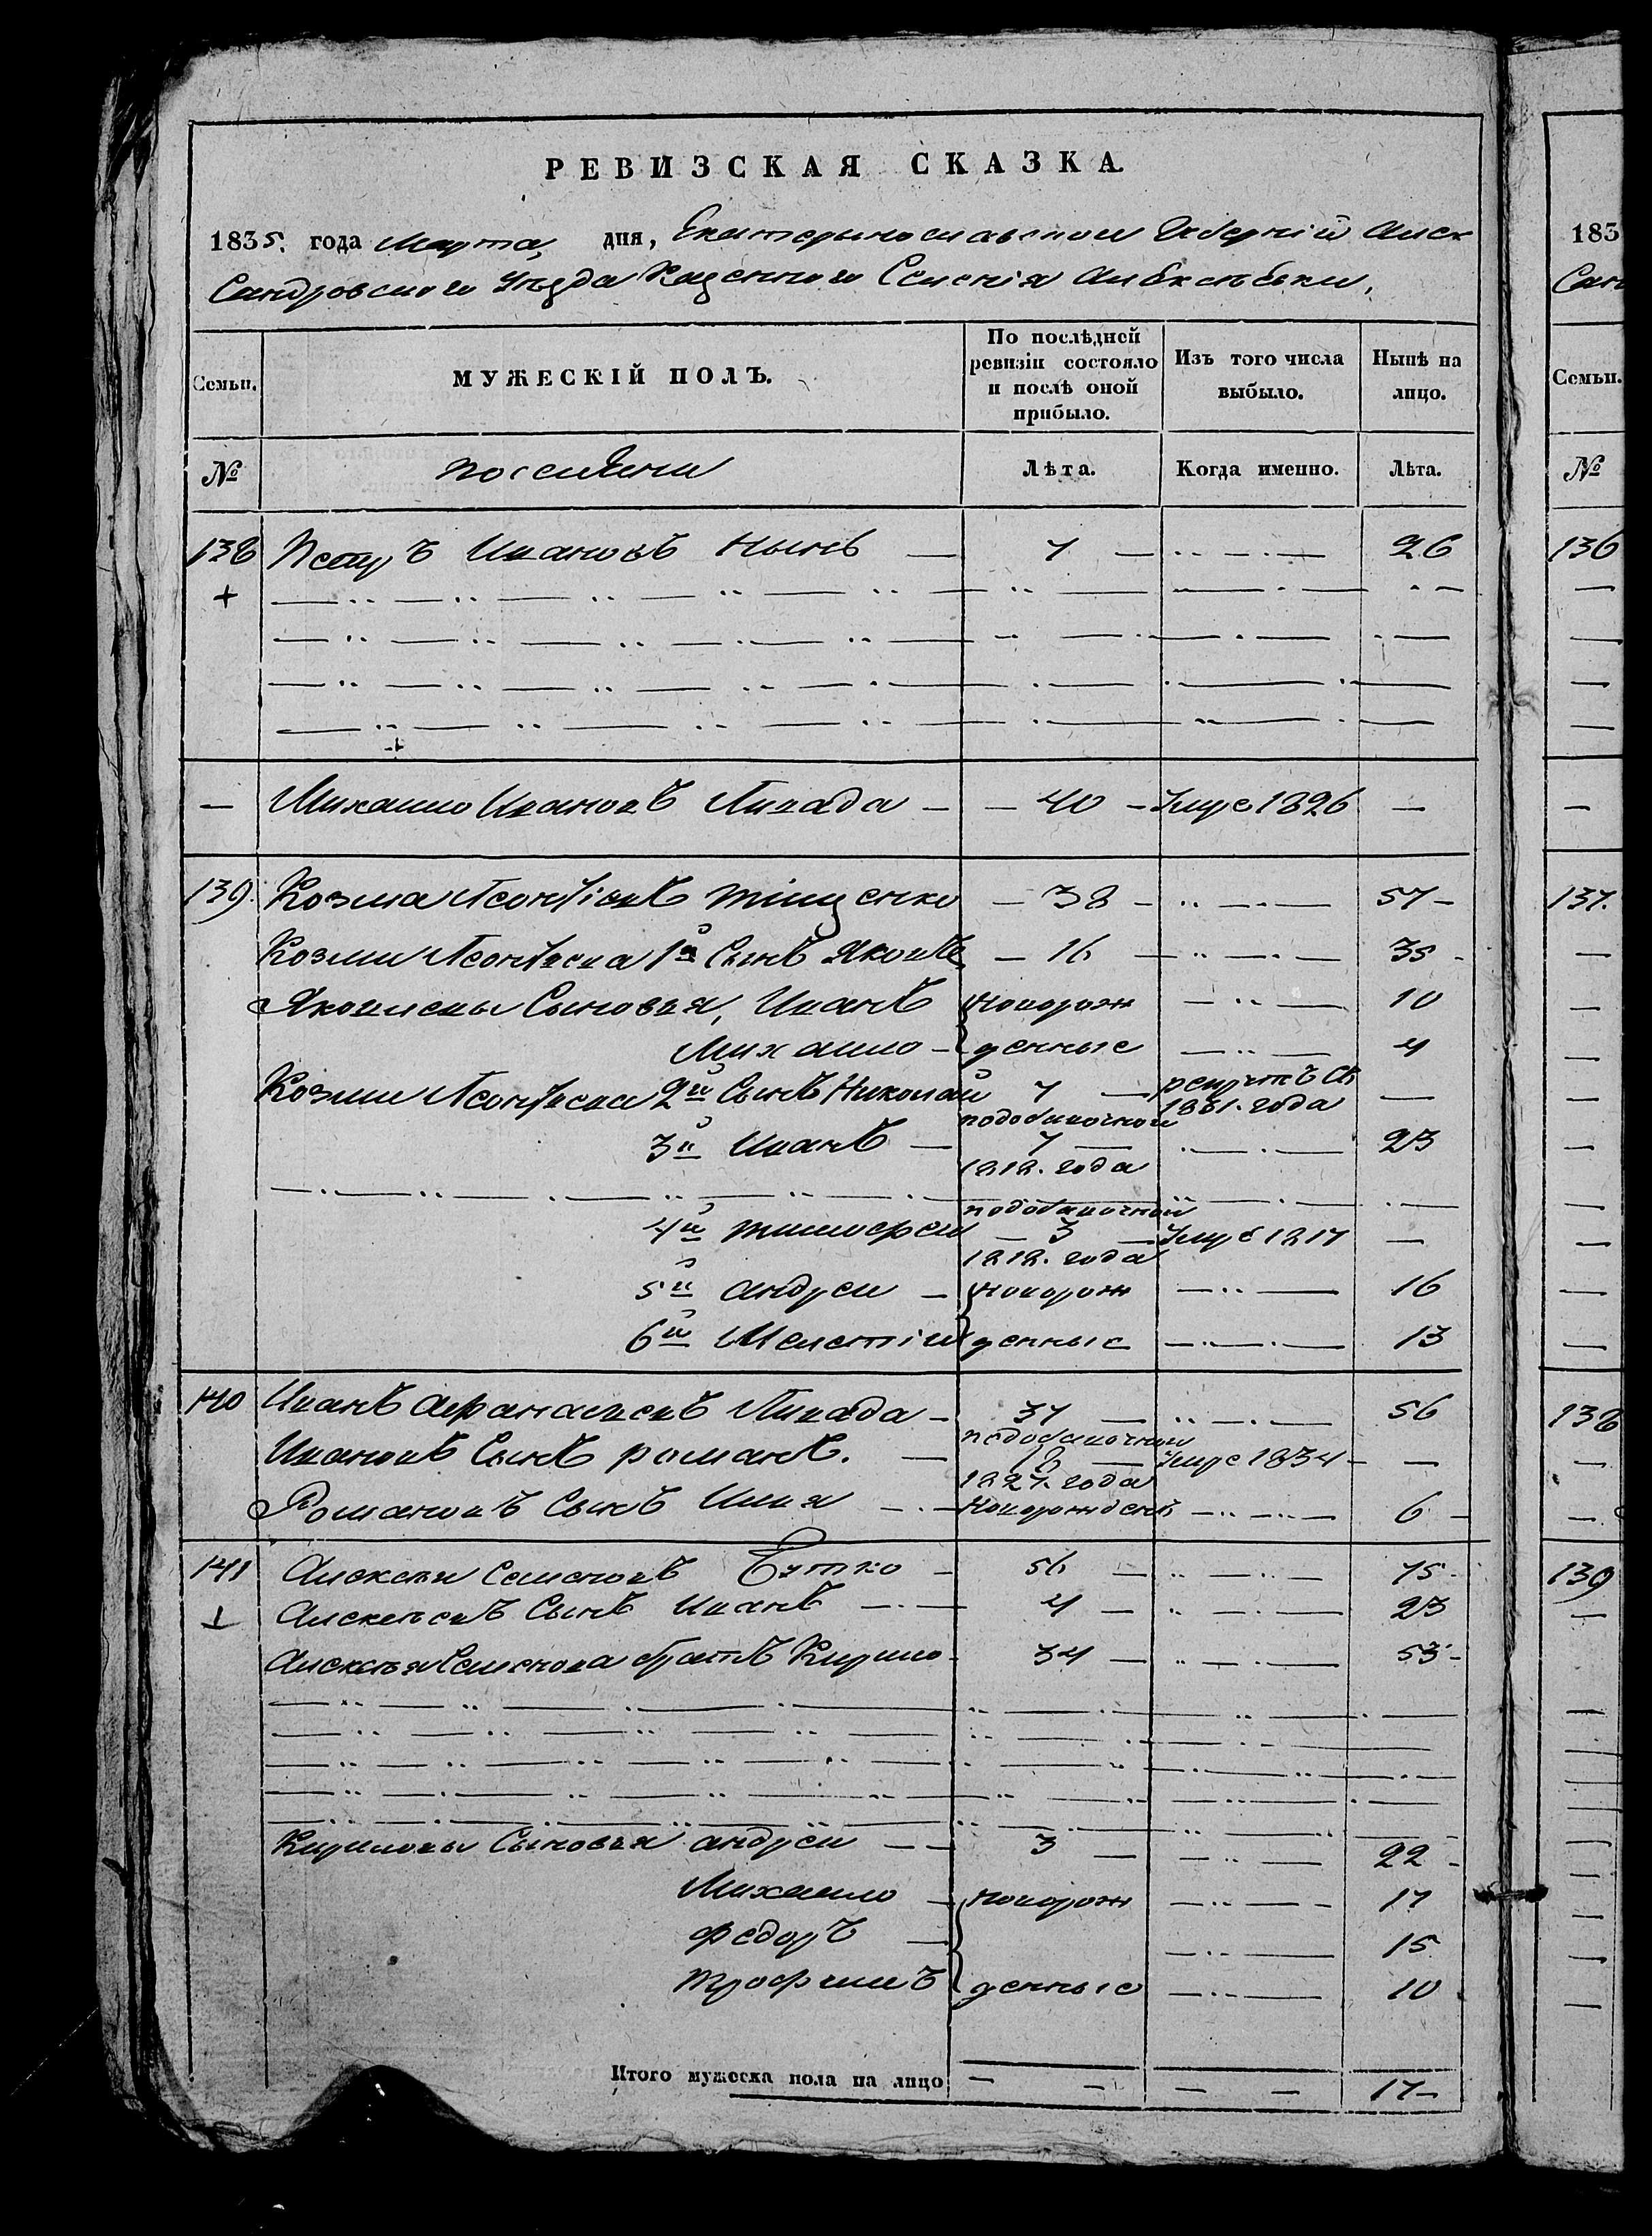 РЕВИЗСКАЯ СКАЗКА.
1835. года Марта, дня, Екатеринославской Губернiи Алек
Сандровского Уѣзда Казенного Селенiя
Семьи. МУЖЕСКІЙ ПОЛЪ. По послѣдней ревизіи состояло и послѣ оной прибыло. Изъ того числа выбыло. Нынѣ на лицо.
№ поселяни Лѣта. Когда именно. Лѣта.
138 Петръ Ивановъ 7 — 26
+
— Михаило Ивановъ Ливада — 40 — Умре 1826 —
139. Козма Леонтіевъ Тищенко — 38 — 57 —
Козми Леонтьева 1й Сынъ Яковъ — 16 — 35 -
Яковлевы Сыновья, Иванъ Новорож 10
Михаило — денные 4
Козми Леонтьева 2й Сынъ Николай 7 — рекрутъ въ 1831. года —
3й Иванъ — подобаночной 7 — 1812. года 23
4й Тимофей подобаночной — 3 — 1812. года Умре 1817 —
5й андрей — Новорож 16
6й Мелетій денные 13
140 Иванъ Афанасьевъ Ливада — 37 — 56
Ивановъ Сынъ романъ. — подобаночной 8 — 1827. года Умре 1834 — —
Романовъ Сынъ Илья — Новорожденъ 6 —
141 Алексѣй Семеновъ Бутко — 56 — 75 -
Алексѣевъ Сынъ Иванъ — 4 — 23
Алексѣя Семенова братъ Кирило — 34 — 53 -
Кириловы Сыновья андрей — 3 — 22 -
Михаило — новорож 17
Федоръ — 15
Трофимъ денные 10
Итого мужеска пола на лицо — — — — 17 —
183
Сан
Семьи.
№
136
137.
138
139